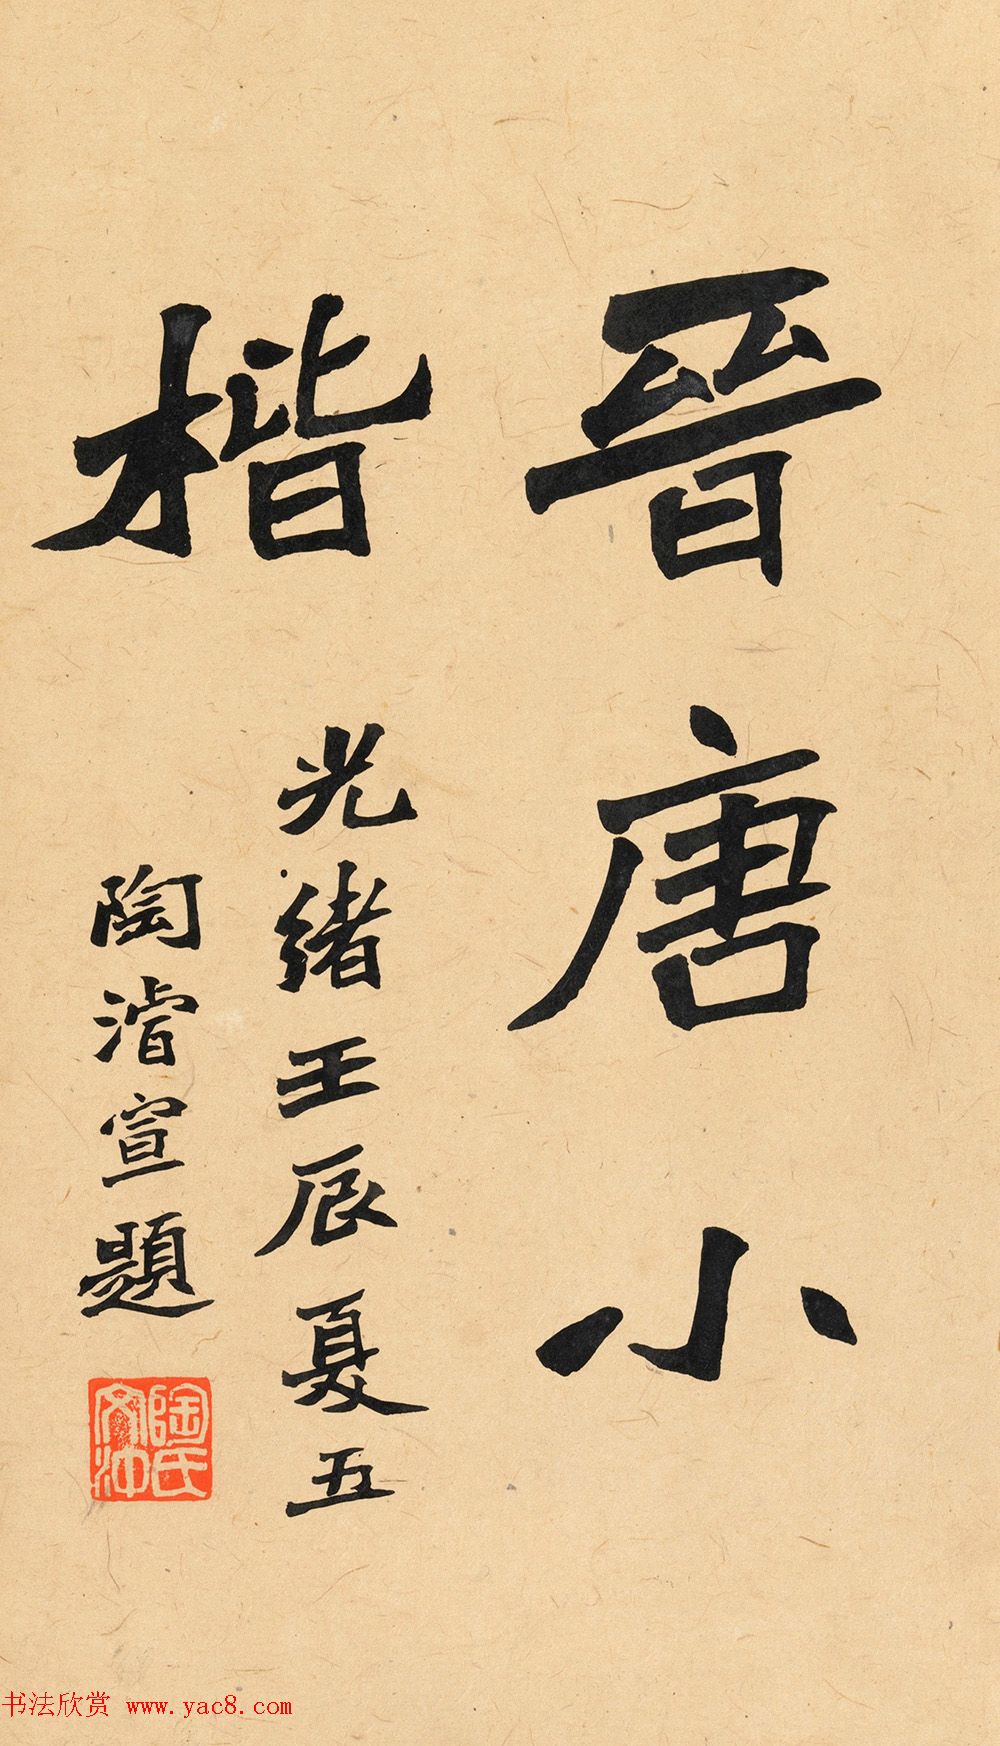 晉唐小
楷
光緒壬辰夏五
陶濬宣題
陶氏文沖
书法欣赏 www.yac8.com